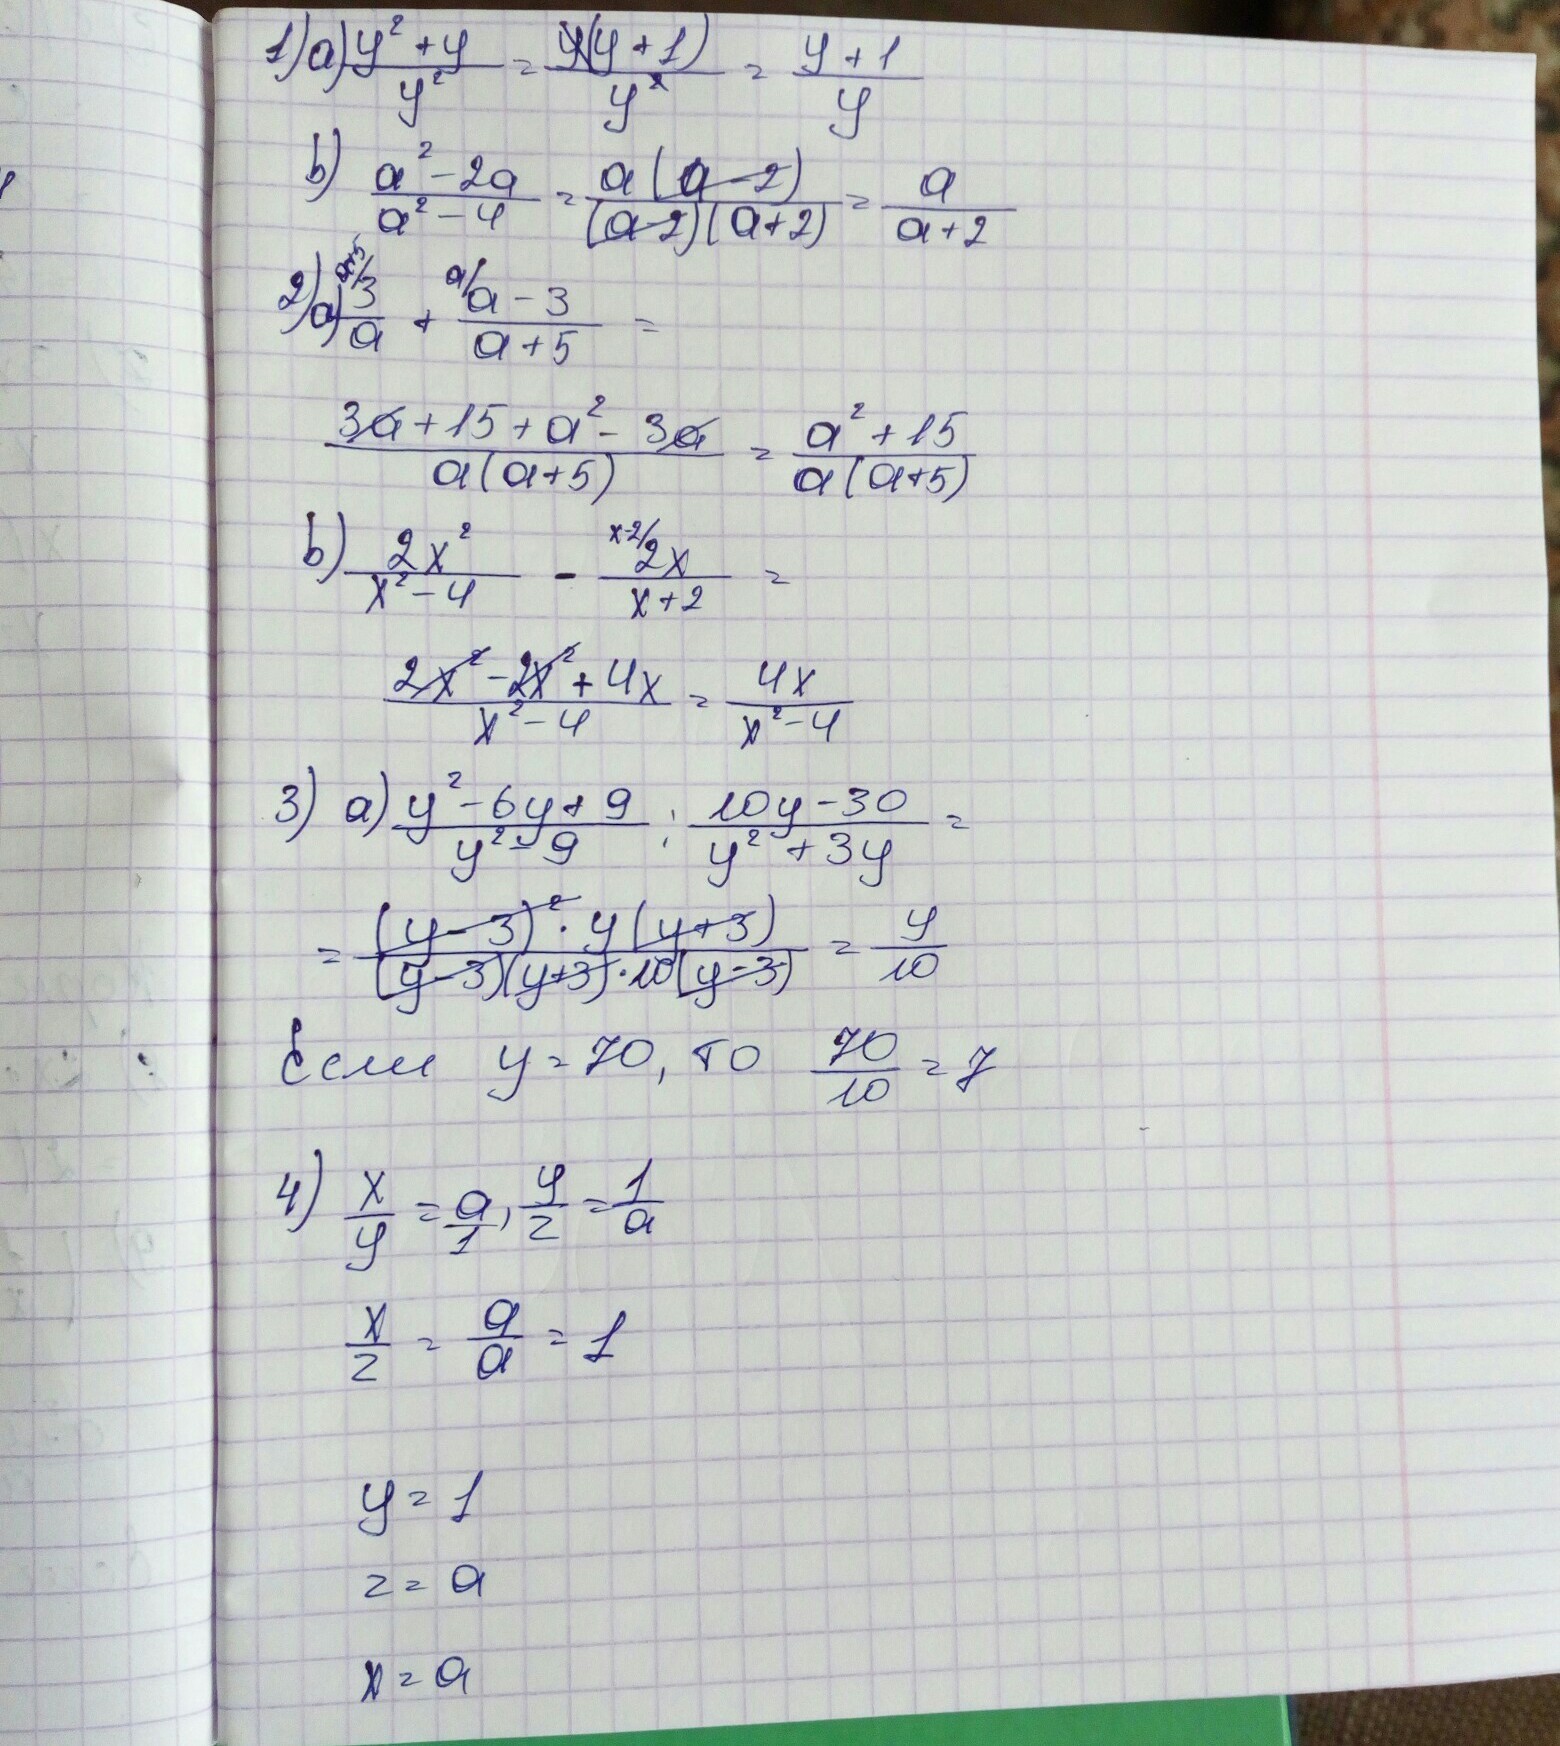 1) a) (y² + y)/y² = y(y + 1)/y² = (y + 1)/y
b) (a² - 2a)/(a² - 4) = a(a - 2)/((a - 2)(a + 2)) = a/(a + 2)
2) a) a+5/ 3/a + a/ (a - 3)/(a + 5) =
(3a + 15 + a² - 3a)/(a(a + 5)) = (a² + 15)/(a(a + 5))
b) 2x²/(x² - 4) - x-2/ 2x/(x + 2) =
(2x² - 2x² + 4x)/(x² - 4) = 4x/(x² - 4)
3) a) (y² - 6y + 9)/(y² - 9) : (10y - 30)/(y² + 3y) =
= ((y - 3)² · y(y + 3))/((y - 3)(y + 3) · 10(y - 3)) = y/10
Если y = 70, то 70/10 = 7
4) x/y = a/1, y/z = 1/a
x/z = a/a = 1
y = 1
z = a
x = a